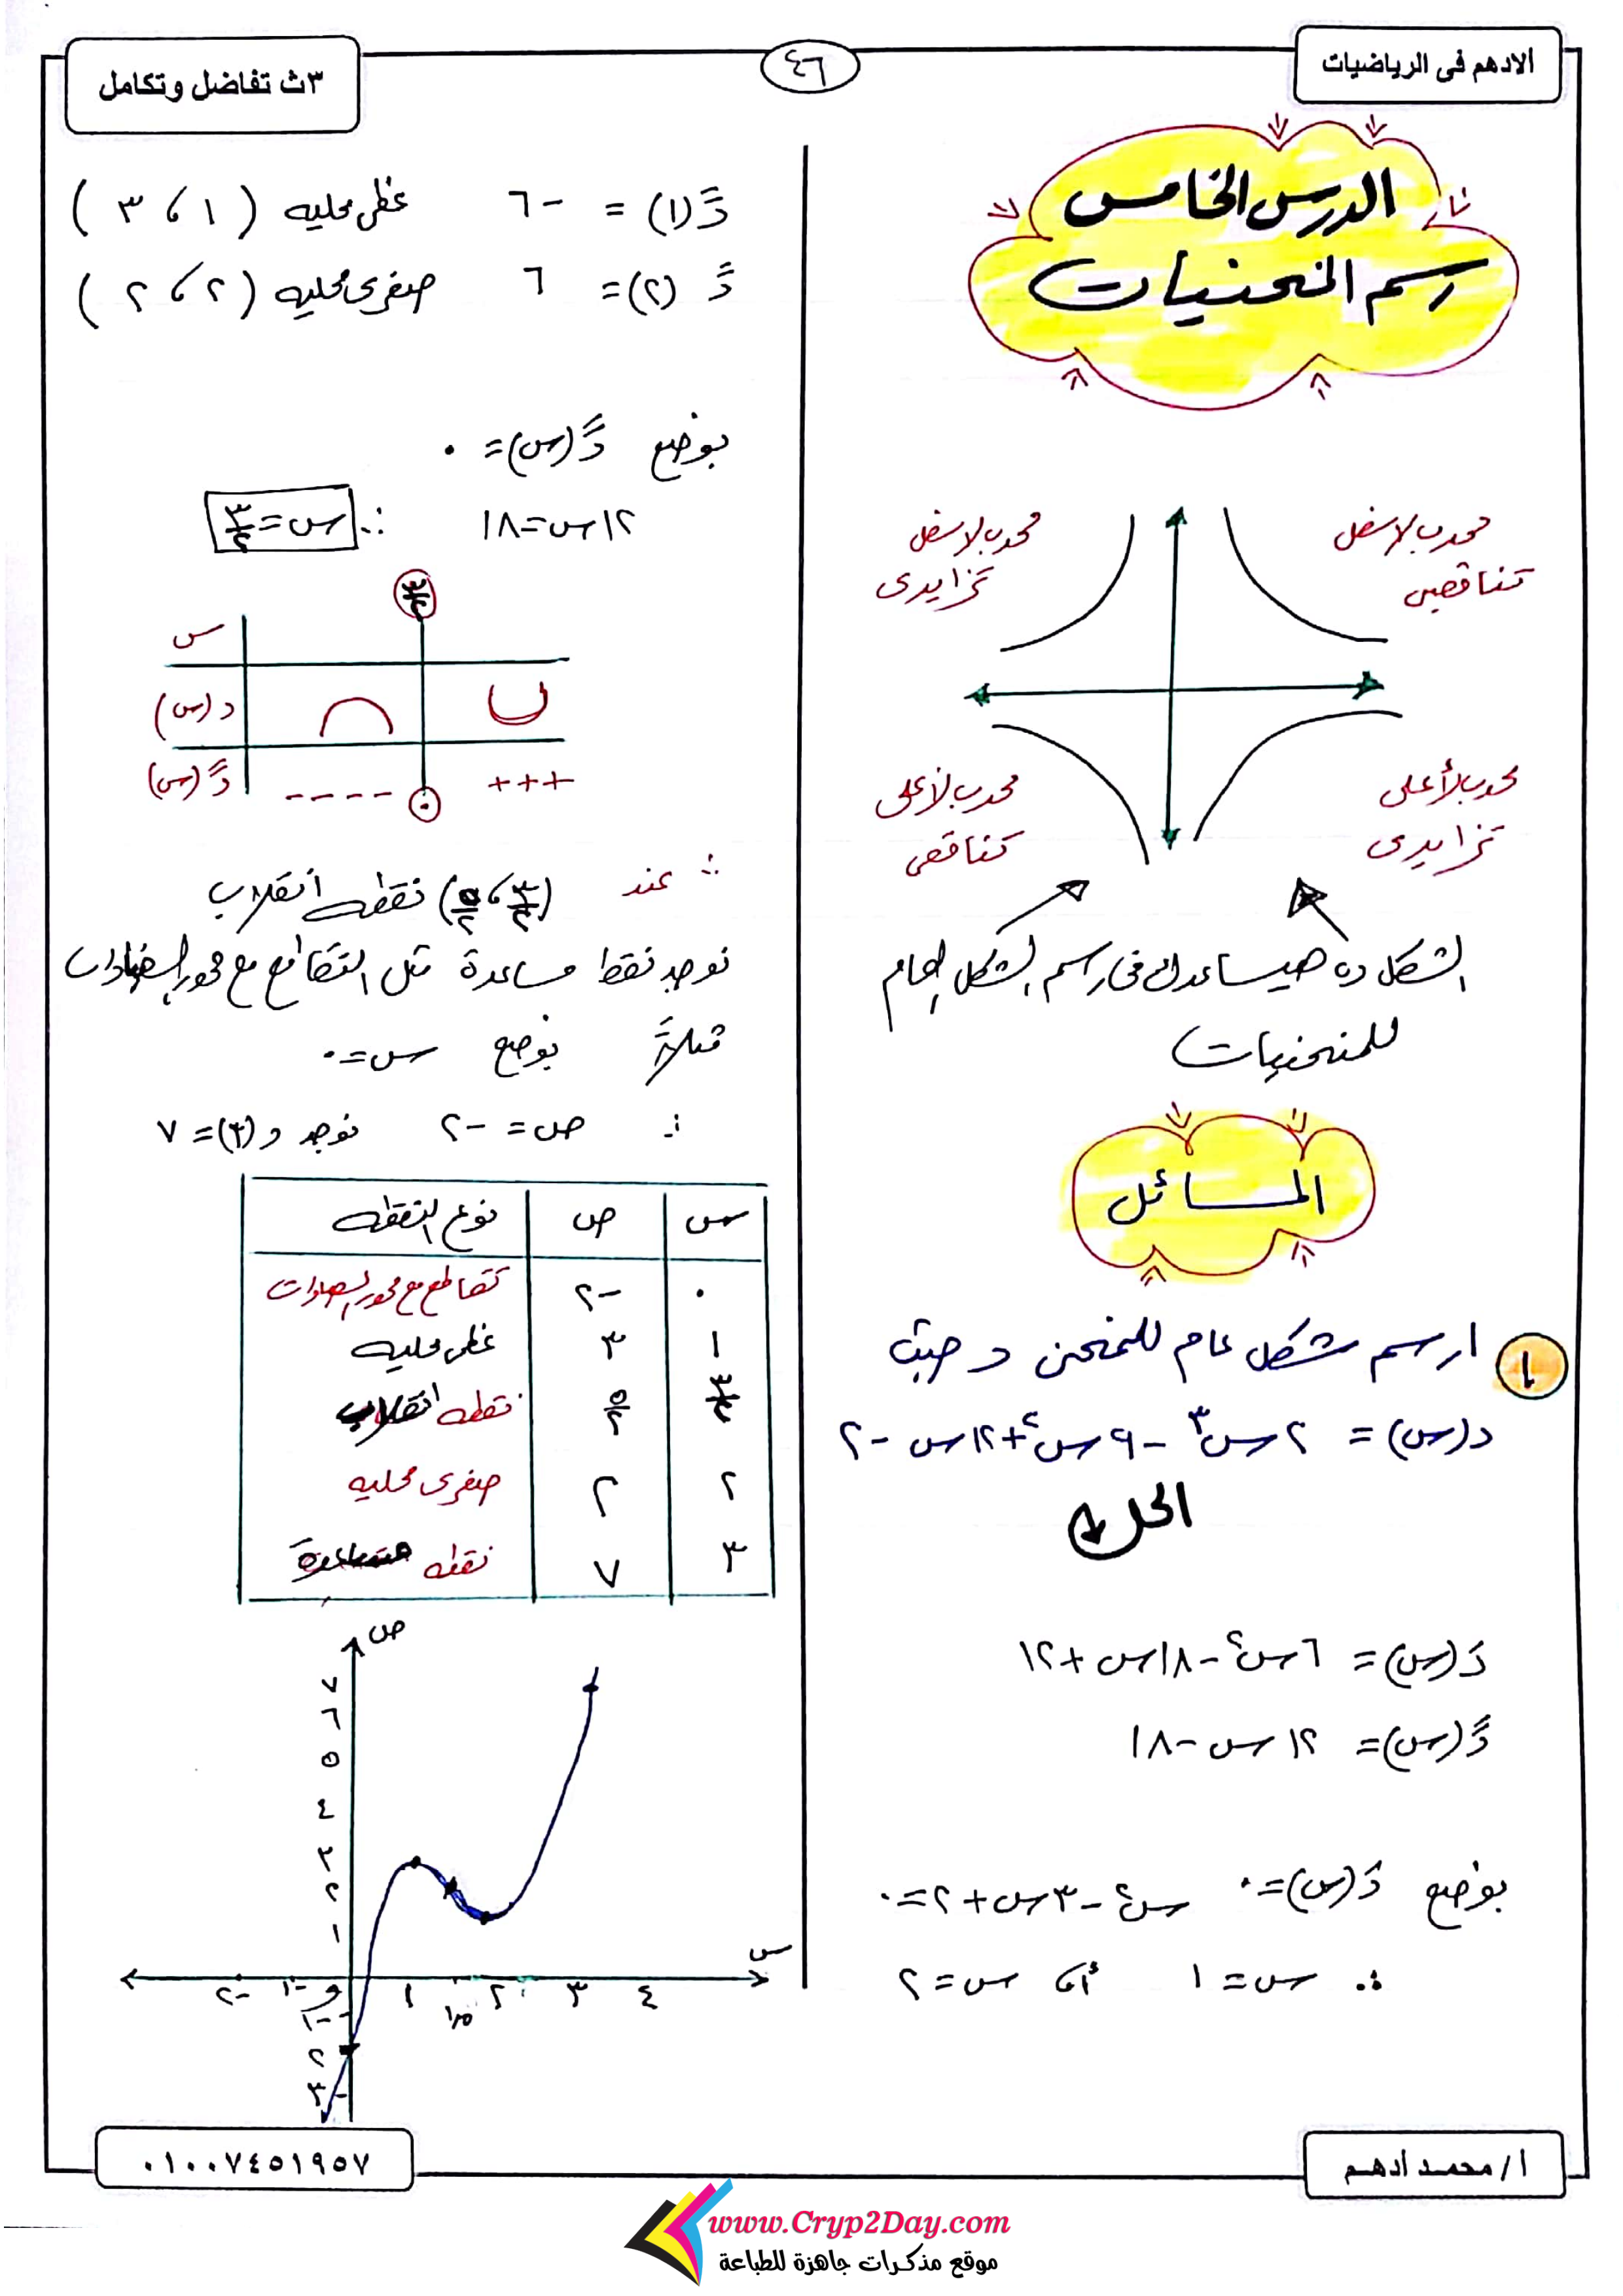 الادهم فى الرياضيات
٤٦
٣ث تفاضل وتكامل
الدرس الخامس
نار
رسم المنحنيات
محدب لاسفل
تناقصى
محدب لاسفل
تزايدى
محدب لأعلى
تزايدى
محدب لأعلى
تناقصى
الشكل ده هيساعدك فى رسم الشكل العام
للمنحنيات
المسائل
١ ارسم شكل عام للمنحنى د حيث
د(س) = ٢س٣ - ٩س٢ + ١٢س - ٢
الحل
دَ(س) = ٦س٢ - ١٨س + ١٢
دً(س) = ١٢س - ١٨
بوضع دَ(س) = ٠ س٢ - ٣س + ٢ = ٠
∴ س = ١ أ، س = ٢
دً(١) = -٦ عظمى محليه (١ ، ٣)
دً(٢) = ٦ صغرى محليه (٢ ، ٢)
بوضع دً(س) = ٠
١٢س = ١٨ ∴ س = ٣/٢
٣/٢
س
د(س)
دً(س) - - - - ٠ + + +
∴ عند (٣/٢ ، ٥/٢) نقطه انقلاب
نوجد نقط مساعدة مثل التقاطع مع محور الصادات
مثلاً بوضع س = ٠
∴ ص = -٢ نوجد د(٣) = ٧
س ص نوع النقطه
٠ -٢ تقاطع مع محور الصادات
١ ٣ عظمى محليه
٣/٢ ٥/٢ نقطه انقلاب
٢ ٢ صغرى محليه
٣ ٧ نقطه مساعدة
ص
٧
٦
٥
٤
٣
٢
١
س
-٢ -١ و ١ ١,٥ ٢ ٣ ٤
-١
٢
-٣
أ/ محمد ادهم
٠١٠٠٧٤٥١٩٥٧
www.Cryp2Day.com
موقع مذكرات جاهزة للطباعة